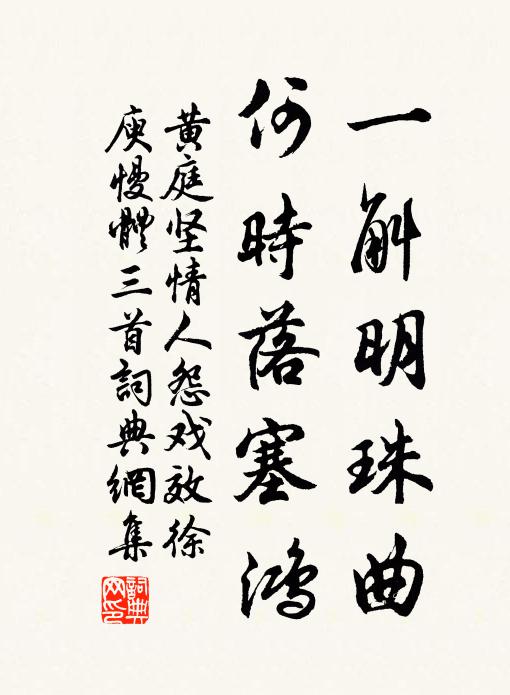 一斛明珠曲
何時落塞鴻
黄庭坚情人怨戏效徐
庾慢體三首詞典網集
詞典網印